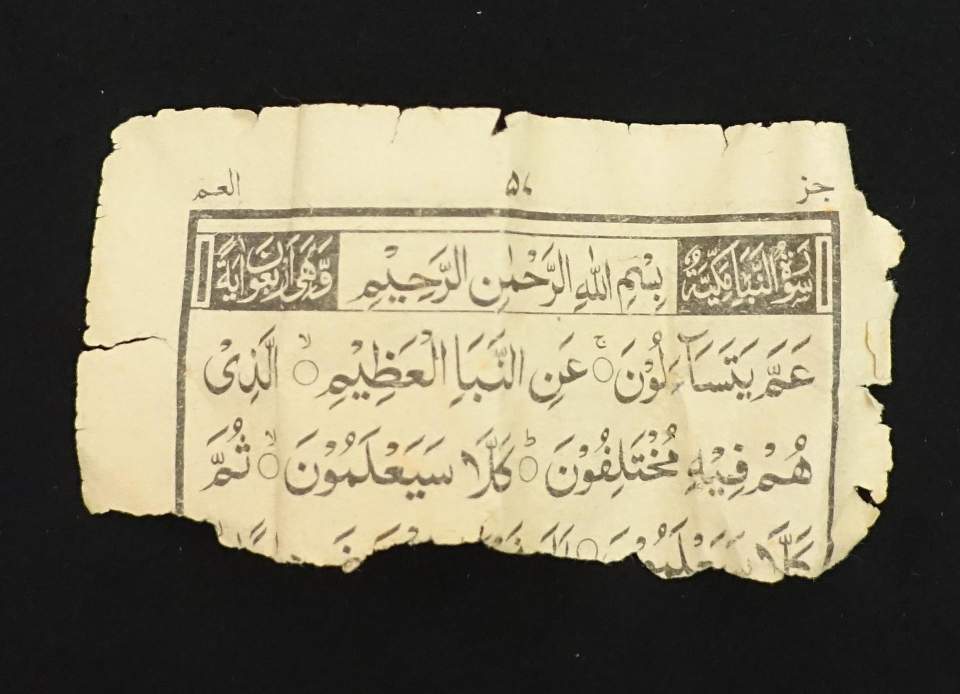 جز ۵۷ العم
سورة النبا مكية بِسْمِ اللهِ الرَّحْمٰنِ الرَّحِيْمِ وَّهِىَ اَرْبَعُوْنَ اٰيَةً
عَمَّ يَتَسَآءَلُوْنَ ۚ عَنِ النَّبَاِ الْعَظِيْمِ ۙ الَّذِىْ
هُمْ فِيْهِ مُخْتَلِفُوْنَ ؕ كَلَّا سَيَعْلَمُوْنَ ۙ ثُمَّ
كَلَّا سَيَعْلَمُوْنَ